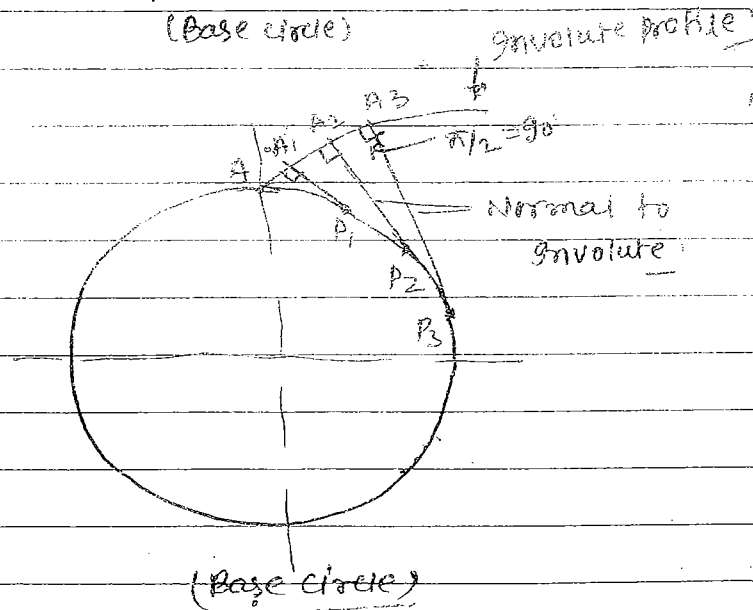 (Base circle)
Involute profile
A
A1
A2
A3
π/2 = 90
Normal to
Involute
P1
P2
P3
(Base circle)